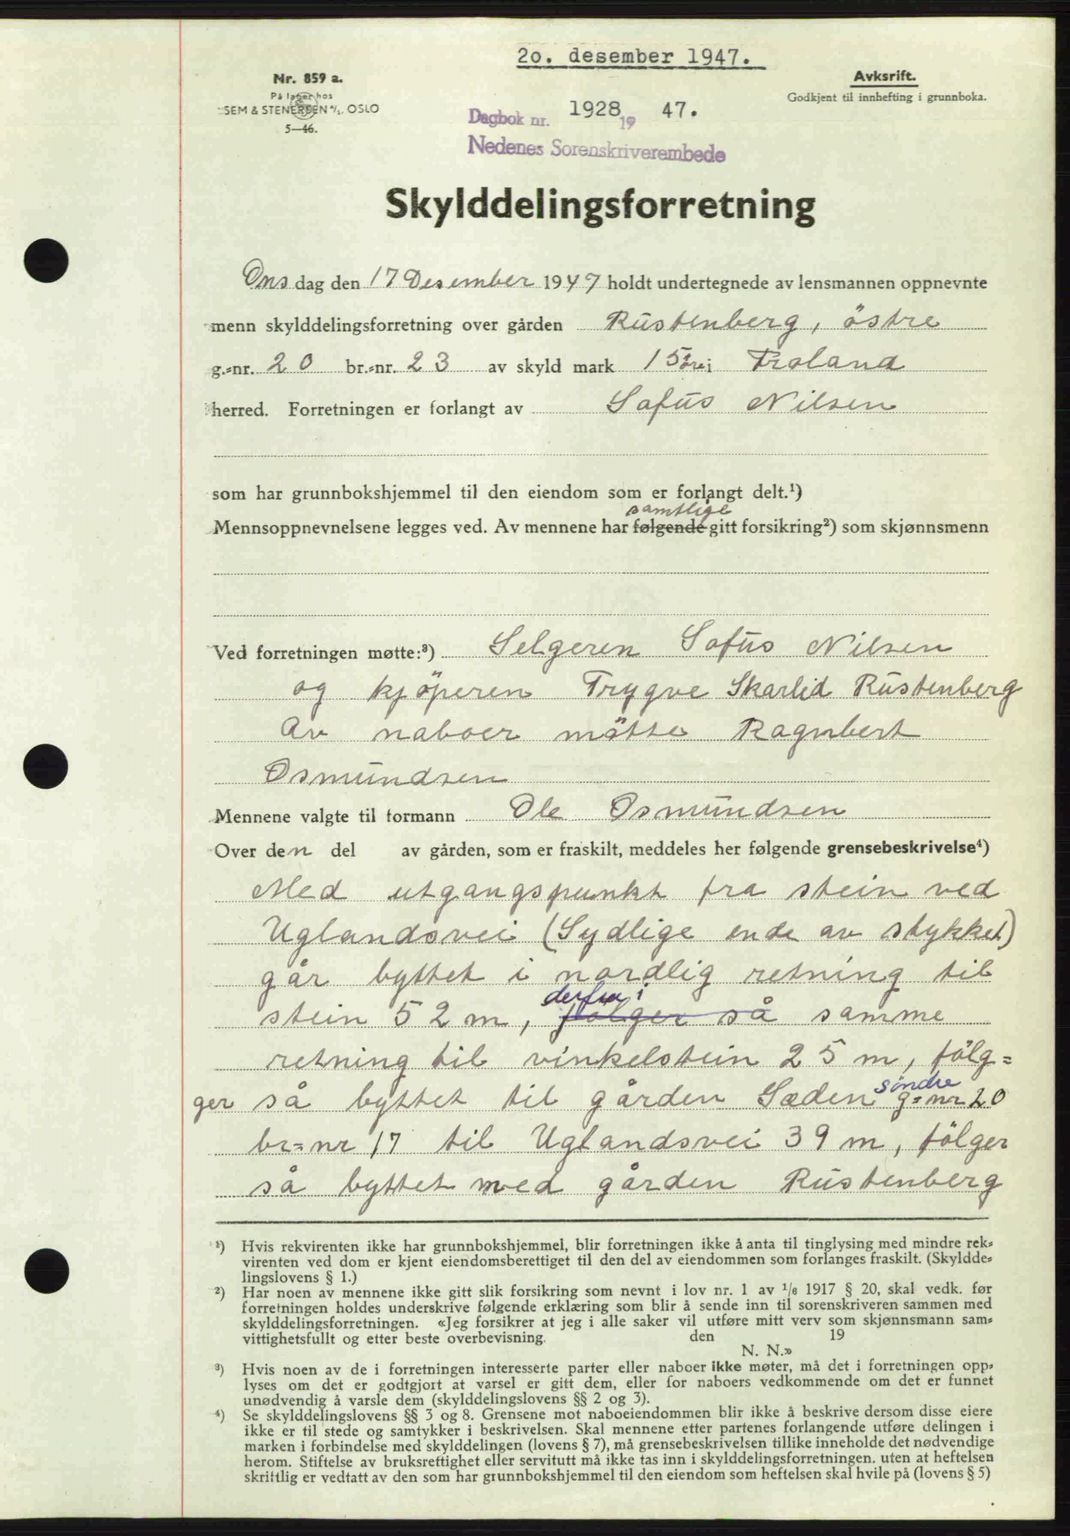 20. desember 1947.
Nr. 859 a.
På lager hos
SEM & STENERSEN A/S. OSLO
5—46.
Avksrift.
Godkjent til innhefting i grunnboka.
Dagbok nr. 1928 19 47.
Nedenes Sorenskriverembede
Skylddelingsforretning
Onsdag den 17 Desember 1947 holdt undertegnede av lensmannen oppnevnte
menn skylddelingsforretning over gården Rustenberg, östre
g.=nr. 20 br.=nr. 23 av skyld mark 15 öre i Froland
herred. Forretningen er forlangt av Sofus Nilsen
som har grunnbokshjemmel til den eiendom som er forlangt delt.¹)
samtlige
Mennsoppnevnelsene legges ved. Av mennene har følgende gitt forsikring²) som skjønnsmenn
Ved forretningen møtte:³) Selgeren Sofus Nilsen
og kjöperen Trygve Skarlid Rustenberg
Av naboer mötte Ragnbert
Osmundsen
Mennene valgte til formann Ole Osmundsen
Over den del av gården, som er fraskilt, meddeles her følgende grensebeskrivelse⁴)
Med utgangspunkt fra stein ved
Uglandsvei (Sydlige ende av stykket)
går byttet i nordlig retning til
derfra i
stein 52 m, fölger så samme
retning til vinkelstein 25 m, fölg=
søndre
ger så byttet til gården Sæden g=nr 20
br=nr 17 til Uglandsvei 39 m, fölger
så byttet med gården Rustenberg
¹) Hvis rekvirenten ikke har grunnbokshjemmel, blir forretningen ikke å anta til tinglysing med mindre rek=
virenten ved dom er kjent eiendomsberettiget til den del av eiendommen som forlanges fraskilt. (Skyldde=
lingslovens § 1.)
²) Har noen av mennene ikke gitt slik forsikring som nevnt i lov nr. 1 av 1/6 1917 § 20, skal vedk. før
forretningen holdes underskrive følgende erklæring som blir å sende inn til sorenskriveren sammen med
skylddelingsforretningen. «Jeg forsikrer at jeg i alle saker vil utføre mitt verv som skjønnsmann sam=
vittighetsfullt og etter beste overbevisning. den 19
N. N.»
³) Hvis noen av de i forretningen interesserte parter eller naboer ikke møter, må det i forretningen opp=
lyses om det er godtgjort at varsel er gitt dem, eller for naboers vedkommende om det er funnet
unødvendig å varsle dem (skylddelingslovens §§ 2 og 3).
⁴) Se skylddelingslovens §§ 3 og 8. Grensene mot naboeiendommen blir ikke å beskrive dersom disse eiere
ikke er til stede og samtykker i beskrivelsen. Skal mennene etter partenes forlangende utføre delingen i
marken i forbindelse med skylddelingen (lovens § 7), må grensebeskrivelsen tillike inneholde det nødvendige
herom. Stiftelse av bruksrettighet eller servitutt må ikke tas inn i skylddelingsforretningen. uten at heftelsen
skriftlig er vedtatt av den som har grunnbokshjemmel til den eiendom som heftelsen skal hvile på (lovens § 5)